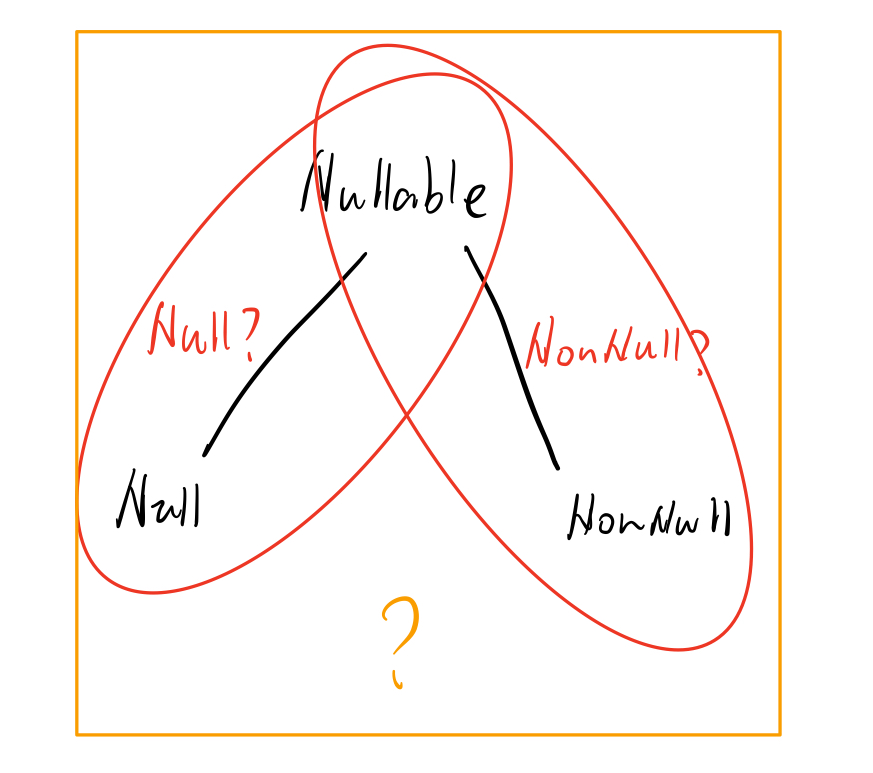 Nullable
Null?
NonNull?
Null
NonNull
?